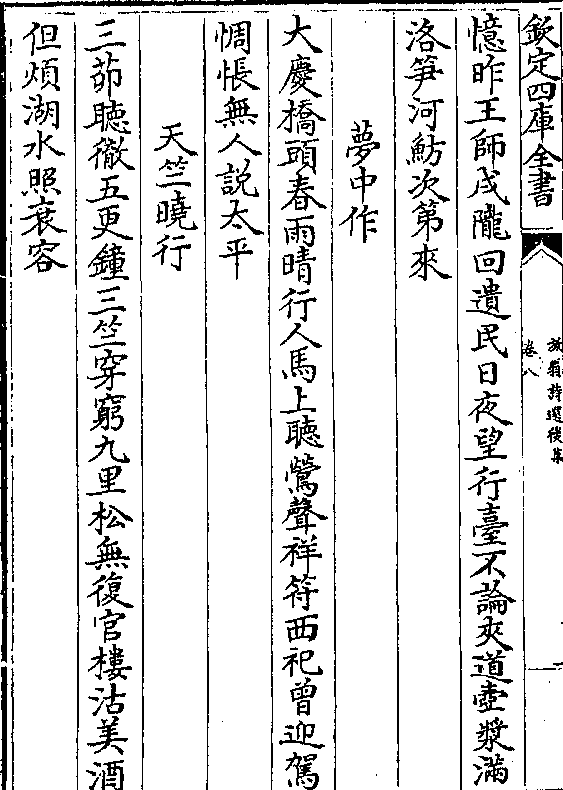 欽定四庫全書
放翁詩選後集
卷八
憶昨王師戍隴回遺民日夜望行臺不論夾道壺漿滿
洛笋河魴次第來
夢中作
大慶橋頭春雨晴行人馬上聽鶯聲祥符西祀曾迎駕
惆悵無人説太平
天竺曉行
三茆聽徹五更鐘三竺穿窮九里松無復官樓沽美酒
但煩湖水照衰容